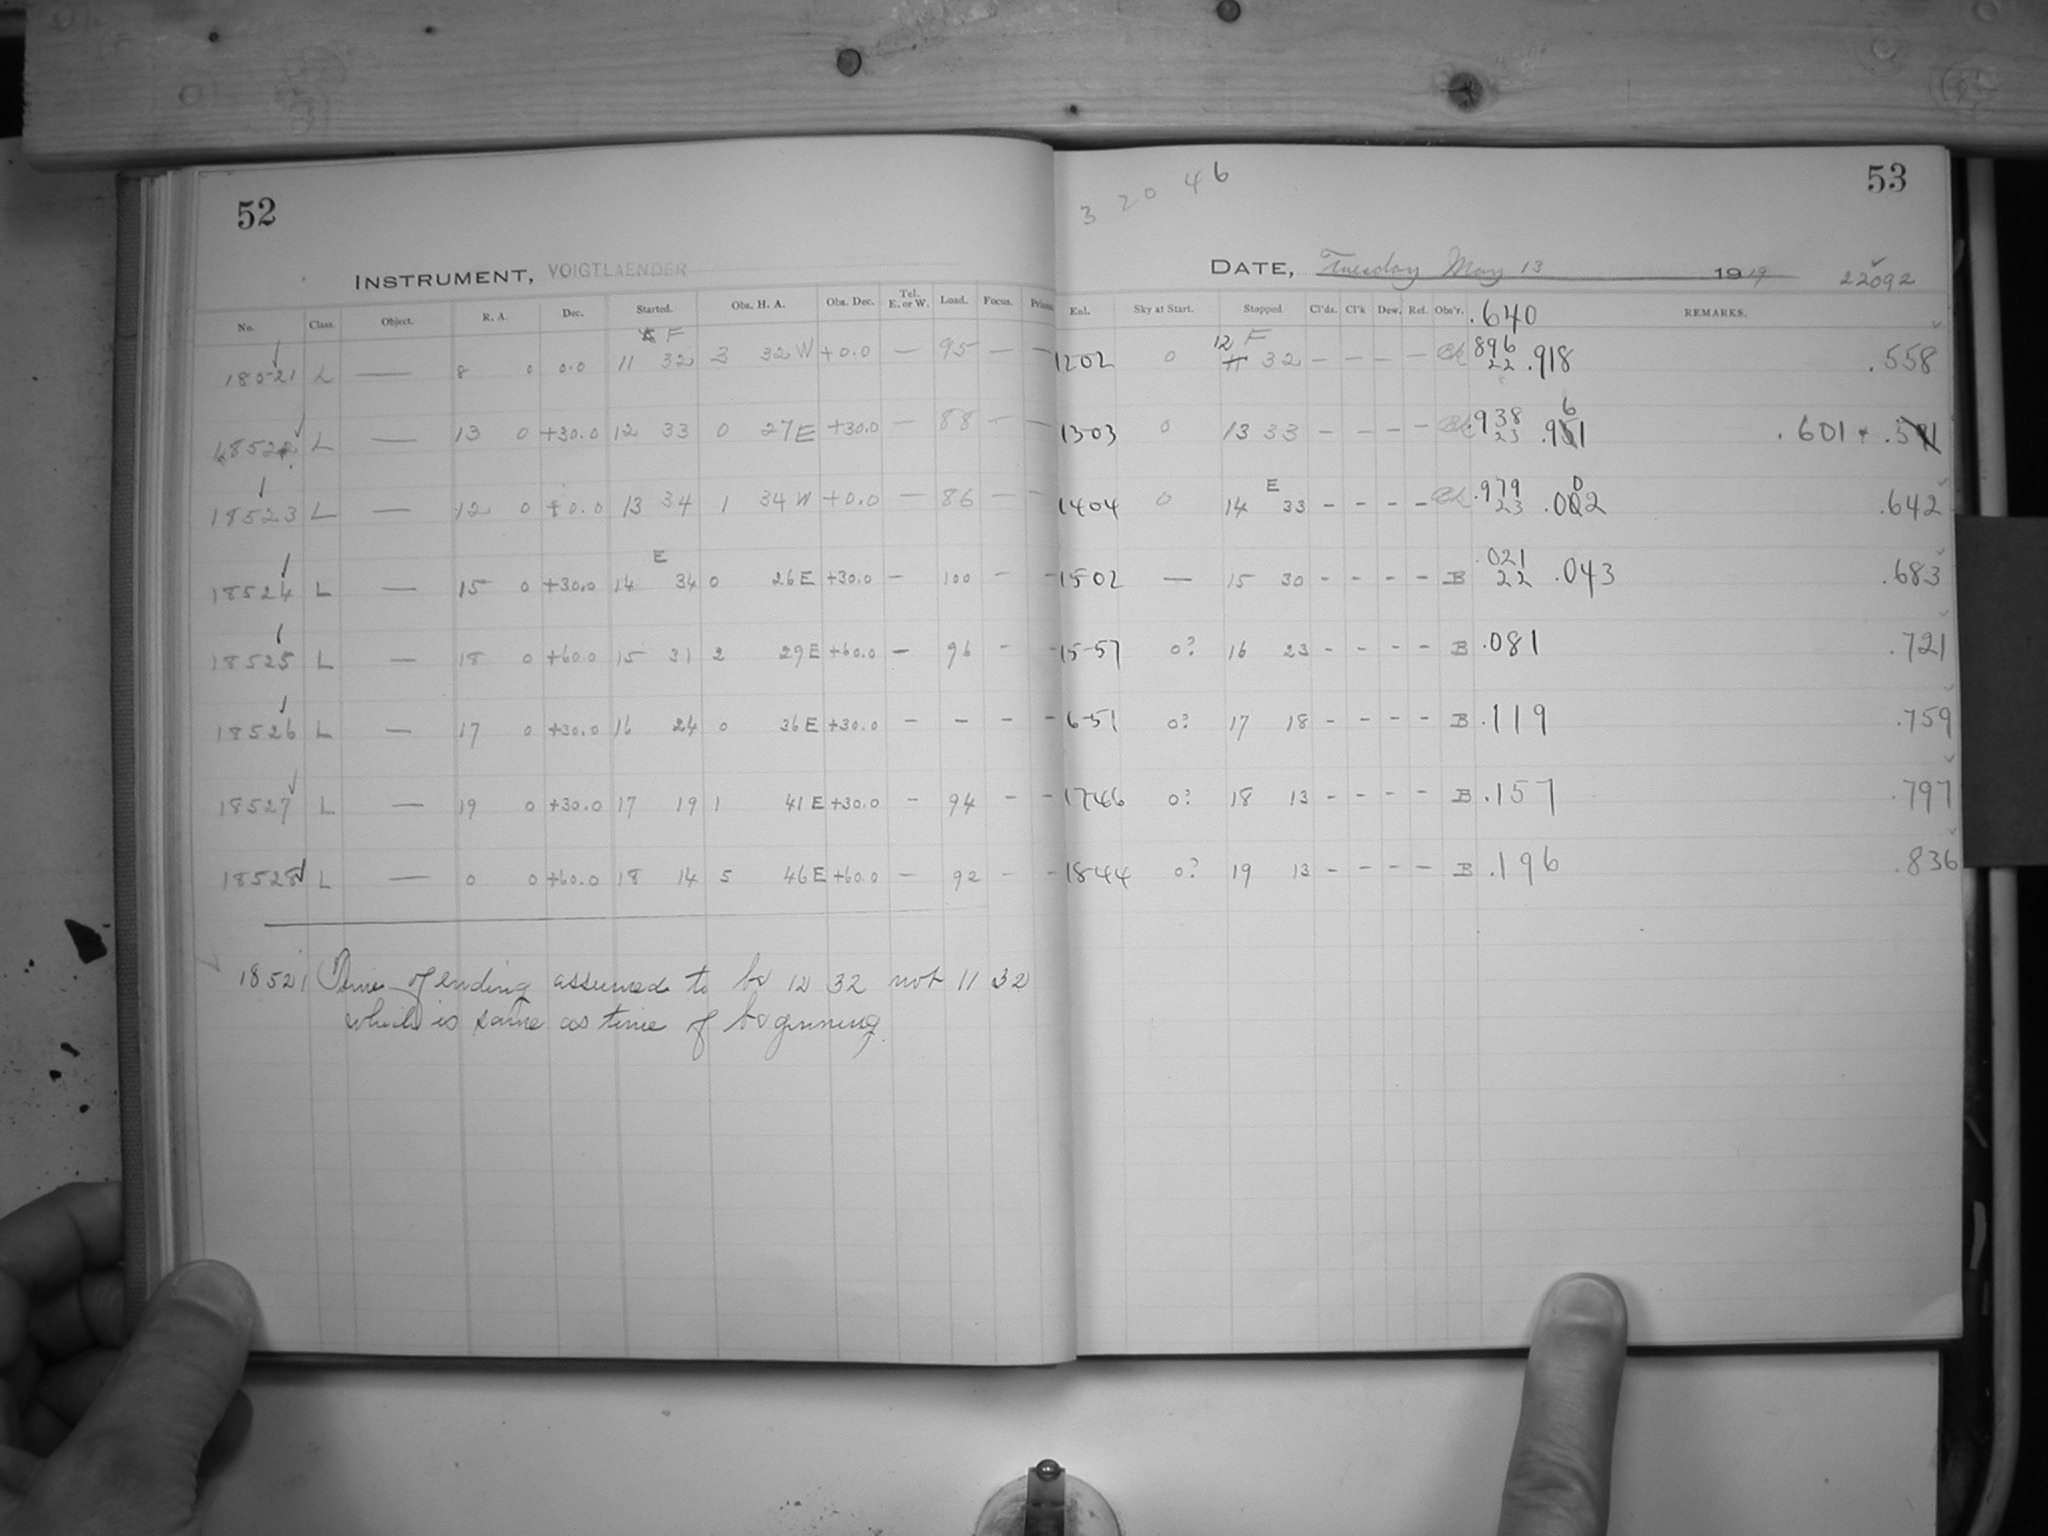 52
INSTRUMENT, VOIGTLAENDER
No. Class. Object. R. A. Dec. Started. Obs. H. A. Obs. Dec. Tel. E. or W. Load. Focus.
F
18521 L — 8 0 0.0 11 32 3 32 W +0.0 — 95 — —
18522 L — 13 0 +30.0 12 33 0 27 E +30.0 — 88 — —
18523 L — 12 0 +0.0 13 34 1 34 W +0.0 — 86 — —
E
18524 L — 15 0 +30.0 14 34 0 26 E +30.0 — 100 — —
18525 L — 18 0 +60.0 15 31 2 29 E +60.0 — 96 — -
18526 L — 17 0 +30.0 16 24 0 36 E +30.0 — — — —
18527 L — 19 0 +30.0 17 19 1 41 E +30.0 — 94 — —
18528 L — 0 0 +60.0 18 14 5 46 E +60.0 — 92 — —
18521 Time of ending assumed to be 12 32 not 11 32
which is same as time of beginning.
3 20 46
53
DATE, Tuesday May 13 1919 22092
Sky at Start. Stopped Cl'ds. Cl'k Dew. Ref. Obs'r. .640 REMARKS.
12 F
1202 0 11 32 - - - - 896 22 .918 .558
1303 0 13 33 - - - - .938 23 .961 .601
E
1404 0 14 33 - - - - .979 23 .002 .642
1502 — 15 30 - - - - B .021 22 .043 .683
15 57 0? 16 23 - - - - B .081 .721
6 51 0? 17 18 - - - - B .119 .759
1746 0? 18 13 - - - - B .157 .797
1844 0? 19 13 - - - - B .196 .836